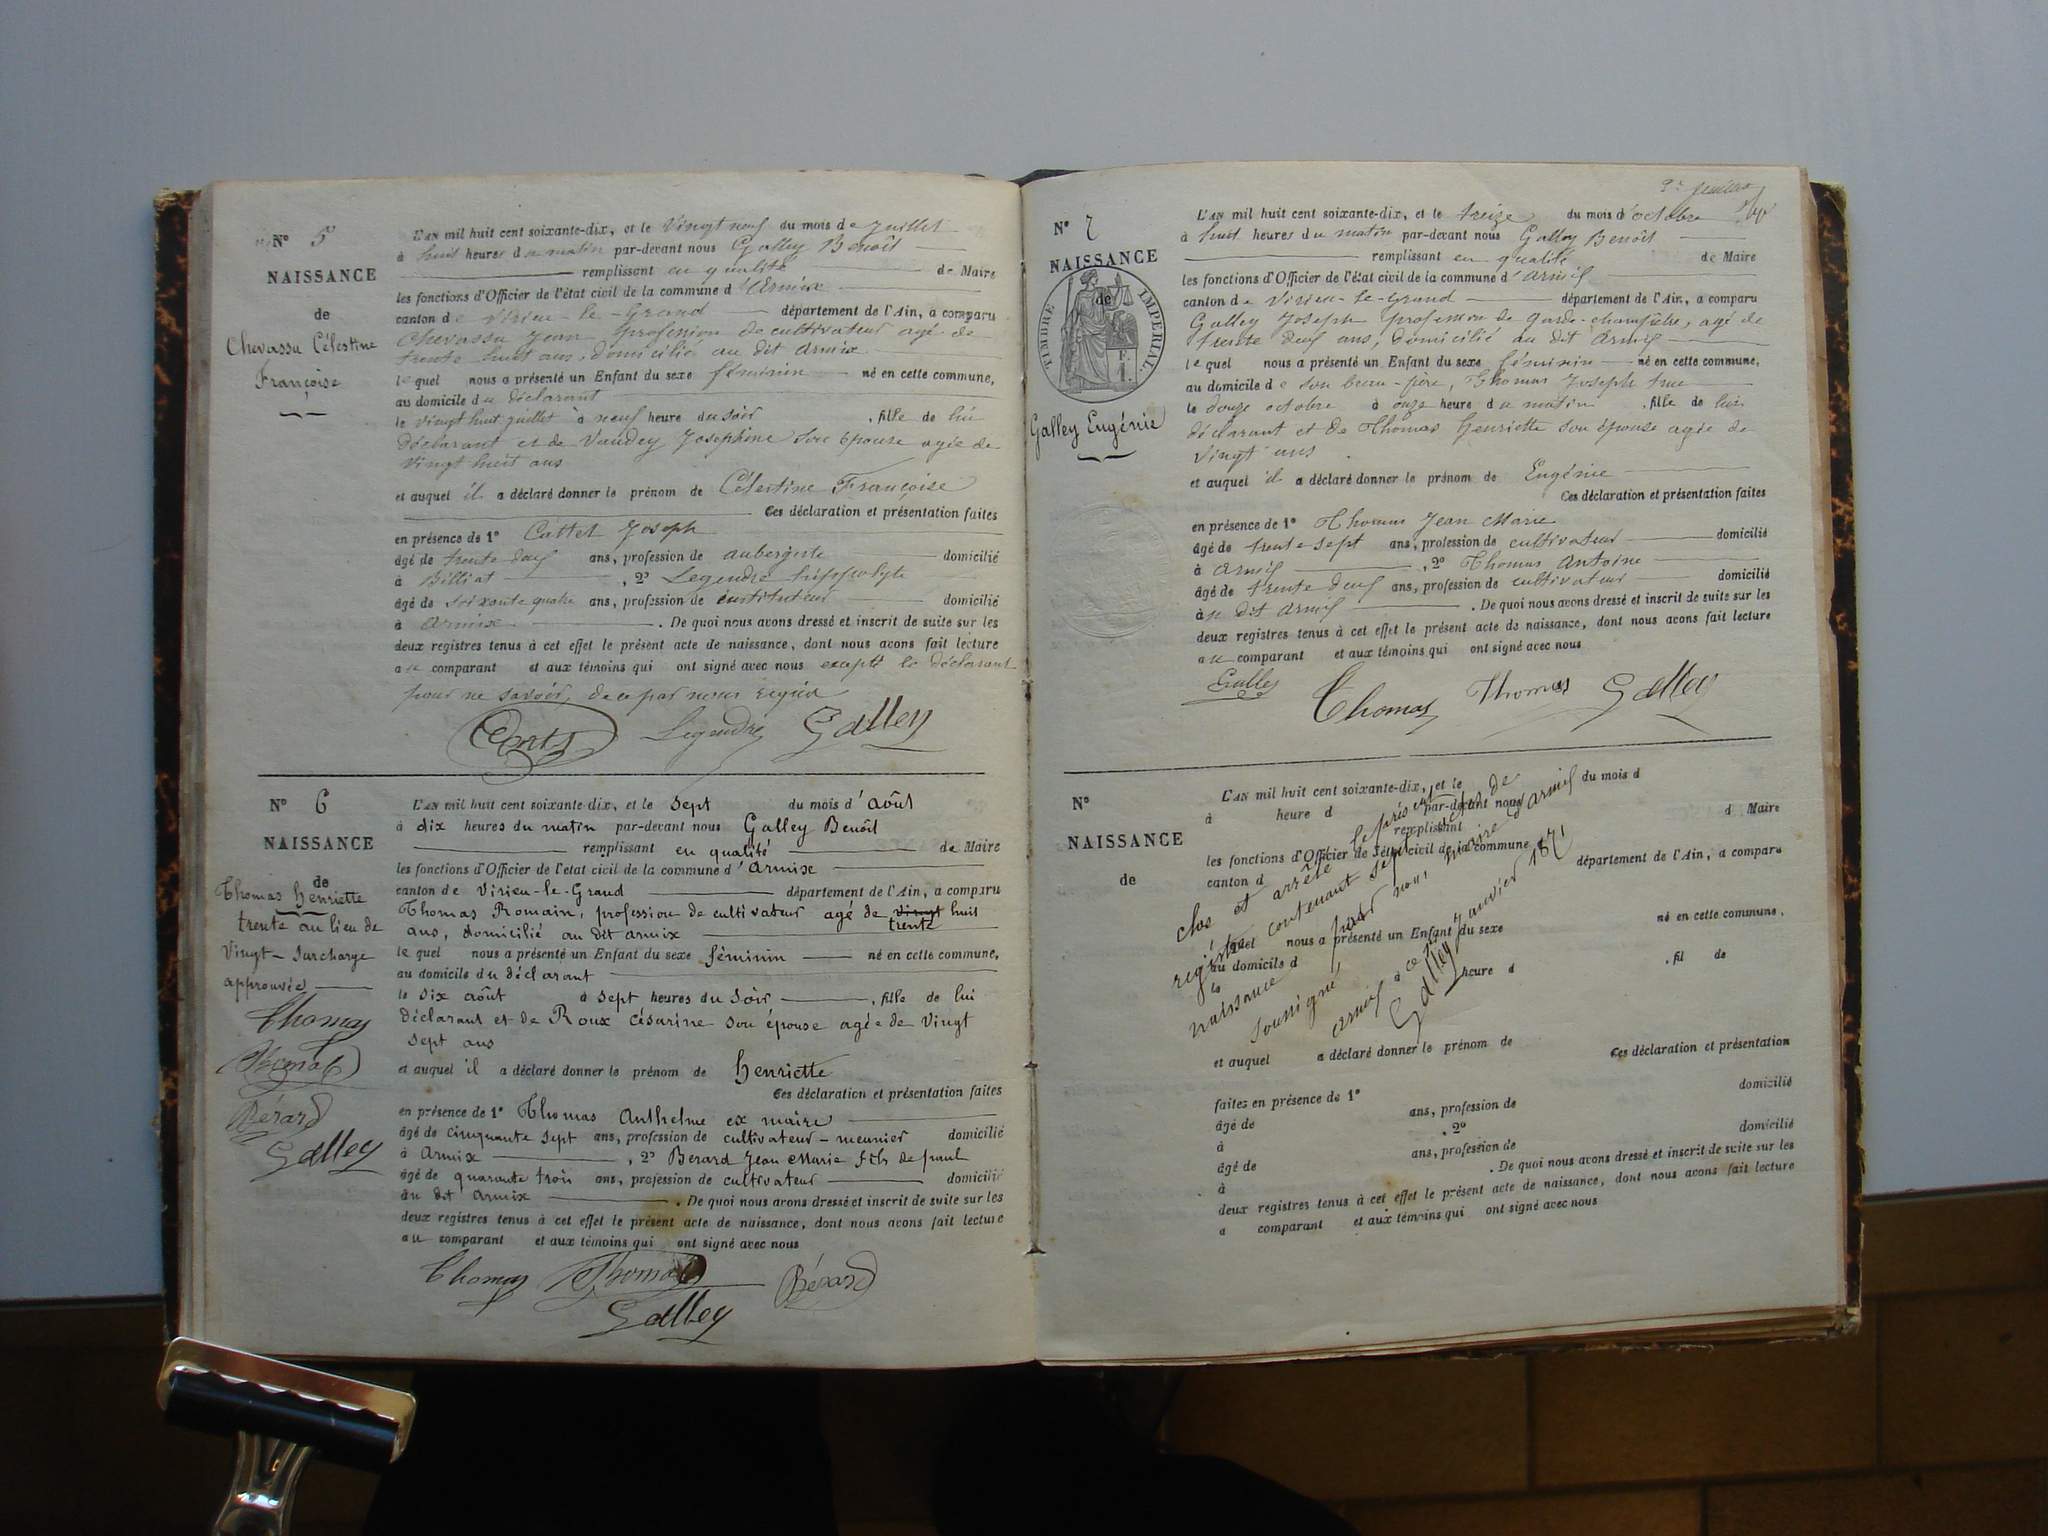 N° 5
NAISSANCE
de
Chevassu Célestine
Françoise
L'AN mil huit cent soixante-dix, et le vingt neuf du mois de Juillet
à huit heures du matin par-devant nous Galley Benoît
remplissant en qualité de Maire
les fonctions d'Officier de l'état civil de la commune d'Armix
canton de Virieu-le-Grand département de l'Ain, a comparu
Chevassu Jean profession de cultivateur agé de
trente huit ans, domicilié au dit Armix
lequel nous a présenté un Enfant du sexe féminin né en cette commune,
au domicile du déclarant
le vingt huit juillet à neuf heure du soir, fille de lui
déclarant et de Vaudey Josephine son épouse agée de
vingt huit ans
et auquel il a déclaré donner le prénom de Célestine Françoise
Ces déclaration et présentation faites
en présence de 1° Joseph
âgé de trente ans, profession de aubergiste domicilié
à Billiat, 2° Legendre hippolyte
âgé de soixante quatre ans, profession de instituteur domicilié
à Armix. De quoi nous avons dressé et inscrit de suite sur les
deux registres tenus à cet effet le présent acte de naissance, dont nous avons fait lecture
au comparant et aux témoins qui ont signé avec nous excepté le déclarant
pour ne savoir, de ce par nous requis
Legendre Galley
N° 6
NAISSANCE
de
Thomas henriette
trente au lieu de
vingt - surcharge
approuvée
Thomas
Thomas
Bérard
Galley
L'AN mil huit cent soixante-dix, et le sept du mois d'août
à dix heures du matin par-devant nous Galley Benoît
remplissant en qualité de Maire
les fonctions d'Officier de l'état civil de la commune d'Armix
canton de Virieu-le-Grand département de l'Ain, a comparu
Thomas Romain, profession de cultivateur agé de vingt huit
trente
ans, domicilié au dit armix
lequel nous a présenté un Enfant du sexe féminin né en cette commune,
au domicile du déclarant
le six août à sept heures du soir, fille de lui
déclarant et de Roux Césarine son épouse agée de vingt
sept ans
et auquel il a déclaré donner le prénom de henriette
Ces déclaration et présentation faites
en présence de 1° Thomas Anthelme ex maire
âgé de cinquante sept ans, profession de cultivateur - meunier domicilié
à Armix, 2° Berard Jean Marie fils de paul
âgé de quarante trois ans, profession de cultivateur domicilié
au dit Armix. De quoi nous avons dressé et inscrit de suite sur les
deux registres tenus à cet effet le présent acte de naissance, dont nous avons fait lecture
au comparant et aux témoins qui ont signé avec nous
Thomas Thomas Bérard
Galley
feuillet
N° 7
NAISSANCE
de
TIMBRE IMPÉRIAL
1 F.
Galley Eugénie
L'AN mil huit cent soixante-dix, et le treize du mois d'octobre
à huit heures du matin par-devant nous Galley Benoît
remplissant en qualité de Maire
les fonctions d'Officier de l'état civil de la commune d'Armix
canton de Virieu-le-Grand département de l'Ain, a comparu
Galley Joseph profession de garde-champêtre, agé de
trente deux ans, domicilié au dit Armix
lequel nous a présenté un Enfant du sexe féminin né en cette commune,
au domicile de son beau-père, Thomas Joseph
le douze octobre à onze heure du matin, fille de lui
déclarant et de Thomas henriette son épouse agée de
vingt ans
et auquel il a déclaré donner le prénom de Eugénie
Ces déclaration et présentation faites
en présence de 1° Thomas Jean Marie
âgé de trente-sept ans, profession de cultivateur domicilié
à Armix, 2° Thomas Antoine
âgé de trente deux ans, profession de cultivateur domicilié
au dit Armix. De quoi nous avons dressé et inscrit de suite sur les
deux registres tenus à cet effet le présent acte de naissance, dont nous avons fait lecture
au comparant et aux témoins qui ont signé avec nous
Galley Thomas Thomas Galley
N°
NAISSANCE
de
L'AN mil huit cent soixante-dix, et le du mois d
à heure d par-devant nous
remplissant d Maire
les fonctions d'Officier de l'état civil de la commune d
canton d département de l'Ain, a comparu
lequel nous a présenté un Enfant du sexe né en cette commune,
au domicile d
le à heure d, fil de
clos et arrêté le présent
registre contenant sept actes de
naissance par nous maire d'armix
soussigné,
armix ce 1er janvier 1871
Galley
et auquel a déclaré donner le prénom de
Ces déclaration et présentation
faites en présence de 1°
âgé de ans, profession de domicilié
à , 2°
âgé de ans, profession de domicilié
à . De quoi nous avons dressé et inscrit de suite sur les
deux registres tenus à cet effet le présent acte de naissance, dont nous avons fait lecture
a comparant et aux témoins qui ont signé avec nous